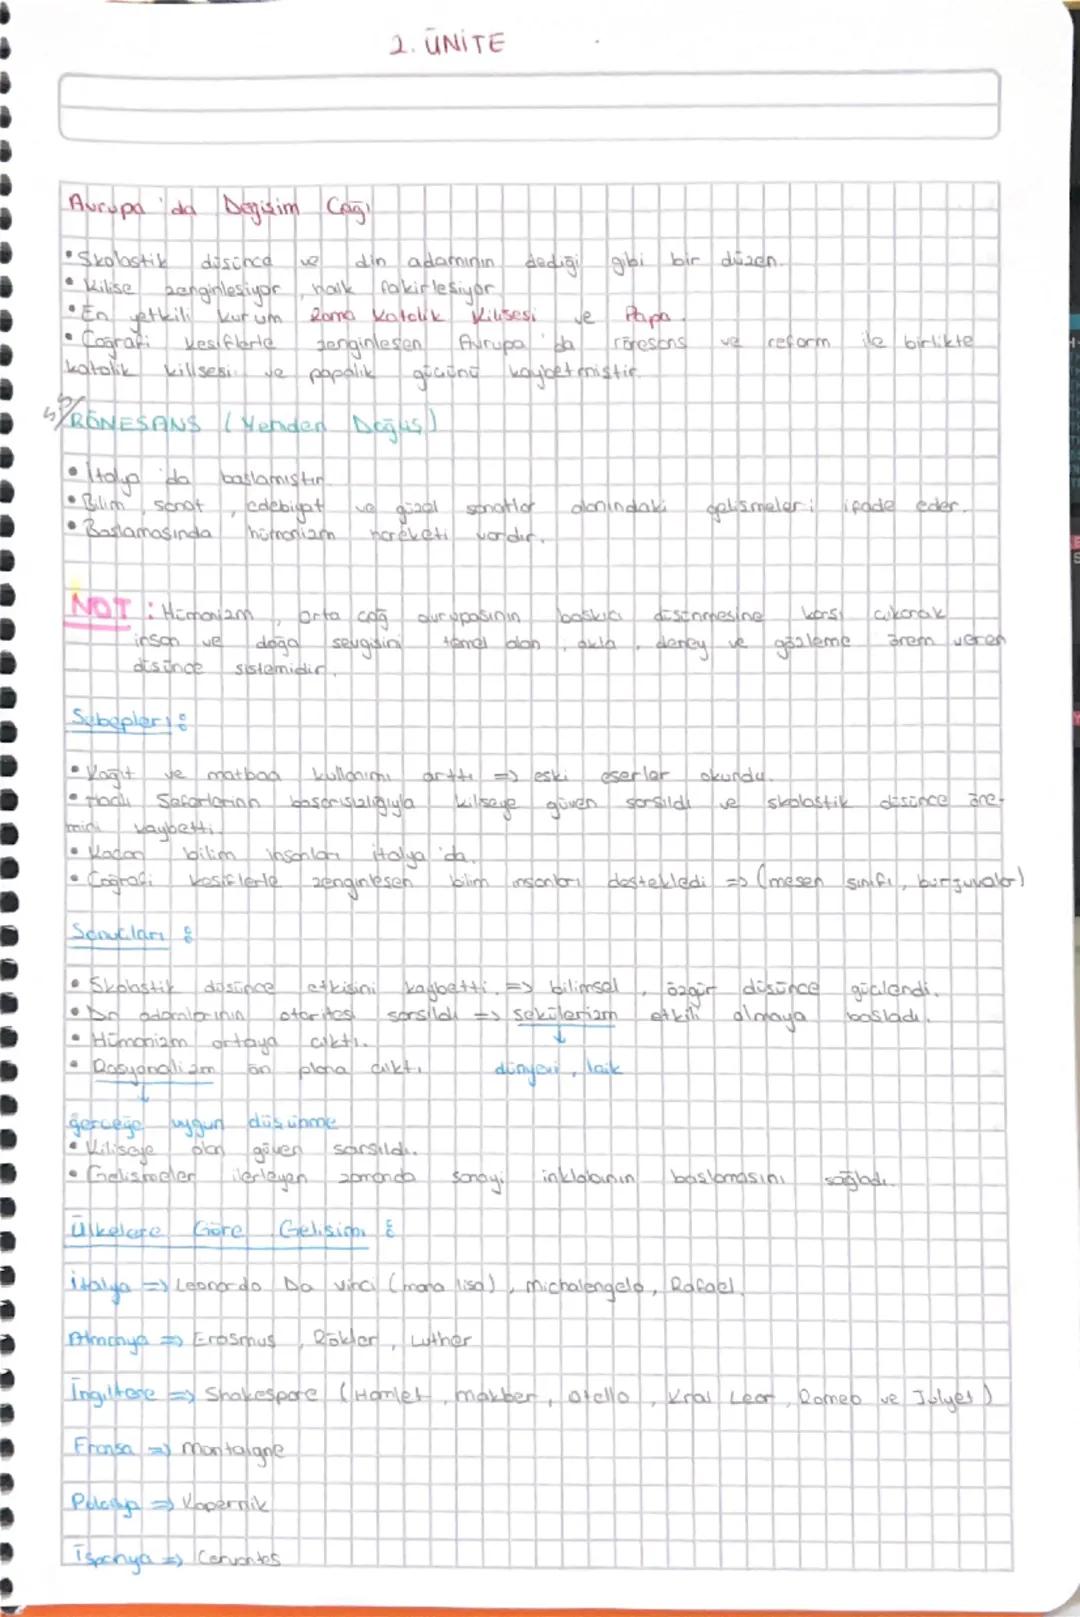 2. ÜNİTE
Avrupa'da Değişim Çağı
• Skolastik düşünce ve din adamının dediği gibi bir düzen.
• Kilise zenginleşiyor, halk fakirleşiyor.
• En yetkili kurum Roma Katolik Kilisesi ve Papa.
• Coğrafi keşiflerle zenginleşen Avrupa'da rönesans ve reform ile birlikte
katolik kilisesi ve papalık gücünü kaybetmiştir.
RÖNESANS (Yeniden Doğuş)
• İtalya'da başlamıştır.
• Bilim, sanat, edebiyat ve güzel sanatlar alanındaki gelişmeleri ifade eder.
• Başlamasında hümanizm hareketi vardır.
NOT: Hümanizm, orta çağ avrupasının baskıcı düşünmesine karşı çıkarak
insan ve doğa sevgisini temel alan, akla, deney ve gözleme önem veren
düşünce sistemidir.
Sebepleri:
• Kağıt ve matbaa kullanımı arttı => eski eserler okundu.
• Haçlı Seferlerinin başarısızlığıyla kilseye güven sarsıldı ve skolastik düşünce öne-
mini kaybetti.
• Kaçan bilim insanları İtalya'da.
• Coğrafi keşiflerle zenginleşen bilim insanları destekledi => (mesen sınıfı, burjuvalar)
Sonuçları:
• Skolastik düşünce etkisini kaybetti. => bilimsel, özgür düşünce güçlendi.
• Din adamlarının otoritesi sarsıldı => sekülerizm etkili olmaya başladı.
• Hümanizm ortaya çıktı.
• Rasyonalizm ön plana çıktı. dünyevi, laik
gerçeğe uygun düşünme
• Kiliseye olan güven sarsıldı.
• Gelişmeler ilerleyen zamanda sanayi inkılabının başlamasını sağladı.
Ülkelere Göre Gelişimi:
İtalya => Leonardo Da vinci (mona lisa), Michalengelo, Rafael.
Almanya => Erasmus, Rökler, Luther
İngiltere => Shakespare (Hamlet, makber, otello, Kral Lear, Romeo ve Jülyet)
Fransa => montaigne
Polonya => Kopernik
İspanya => Cervantes